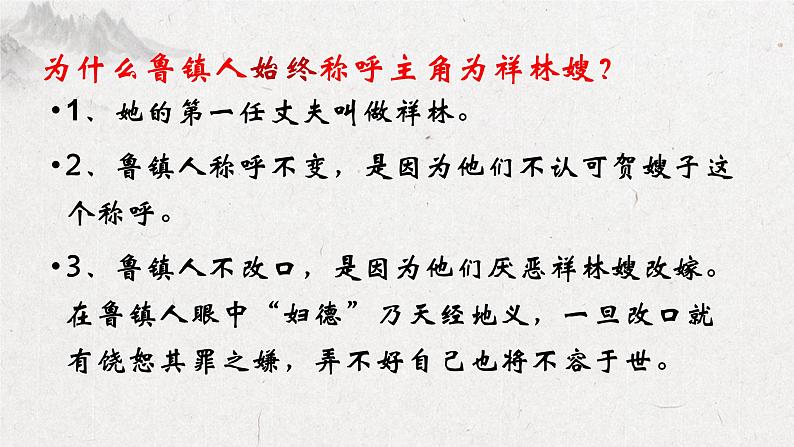 为什么鲁镇人始终称呼主角为祥林嫂？
•1、她的第一任丈夫叫做祥林。
•2、鲁镇人称呼不变，是因为他们不认可贺嫂子这
个称呼。
•3、鲁镇人不改口，是因为他们厌恶祥林嫂改嫁。
在鲁镇人眼中“妇德”乃天经地义，一旦改口就
有饶恕其罪之嫌，弄不好自己也将不容于世。